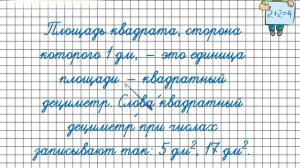 2+2=4
Площадь квадрата, сторона
которого 1 дм, – это единица
площади – квадратный
дециметр. Слова квадратный
дециметр при числах
записывают так: 5 дм². 17 дм².